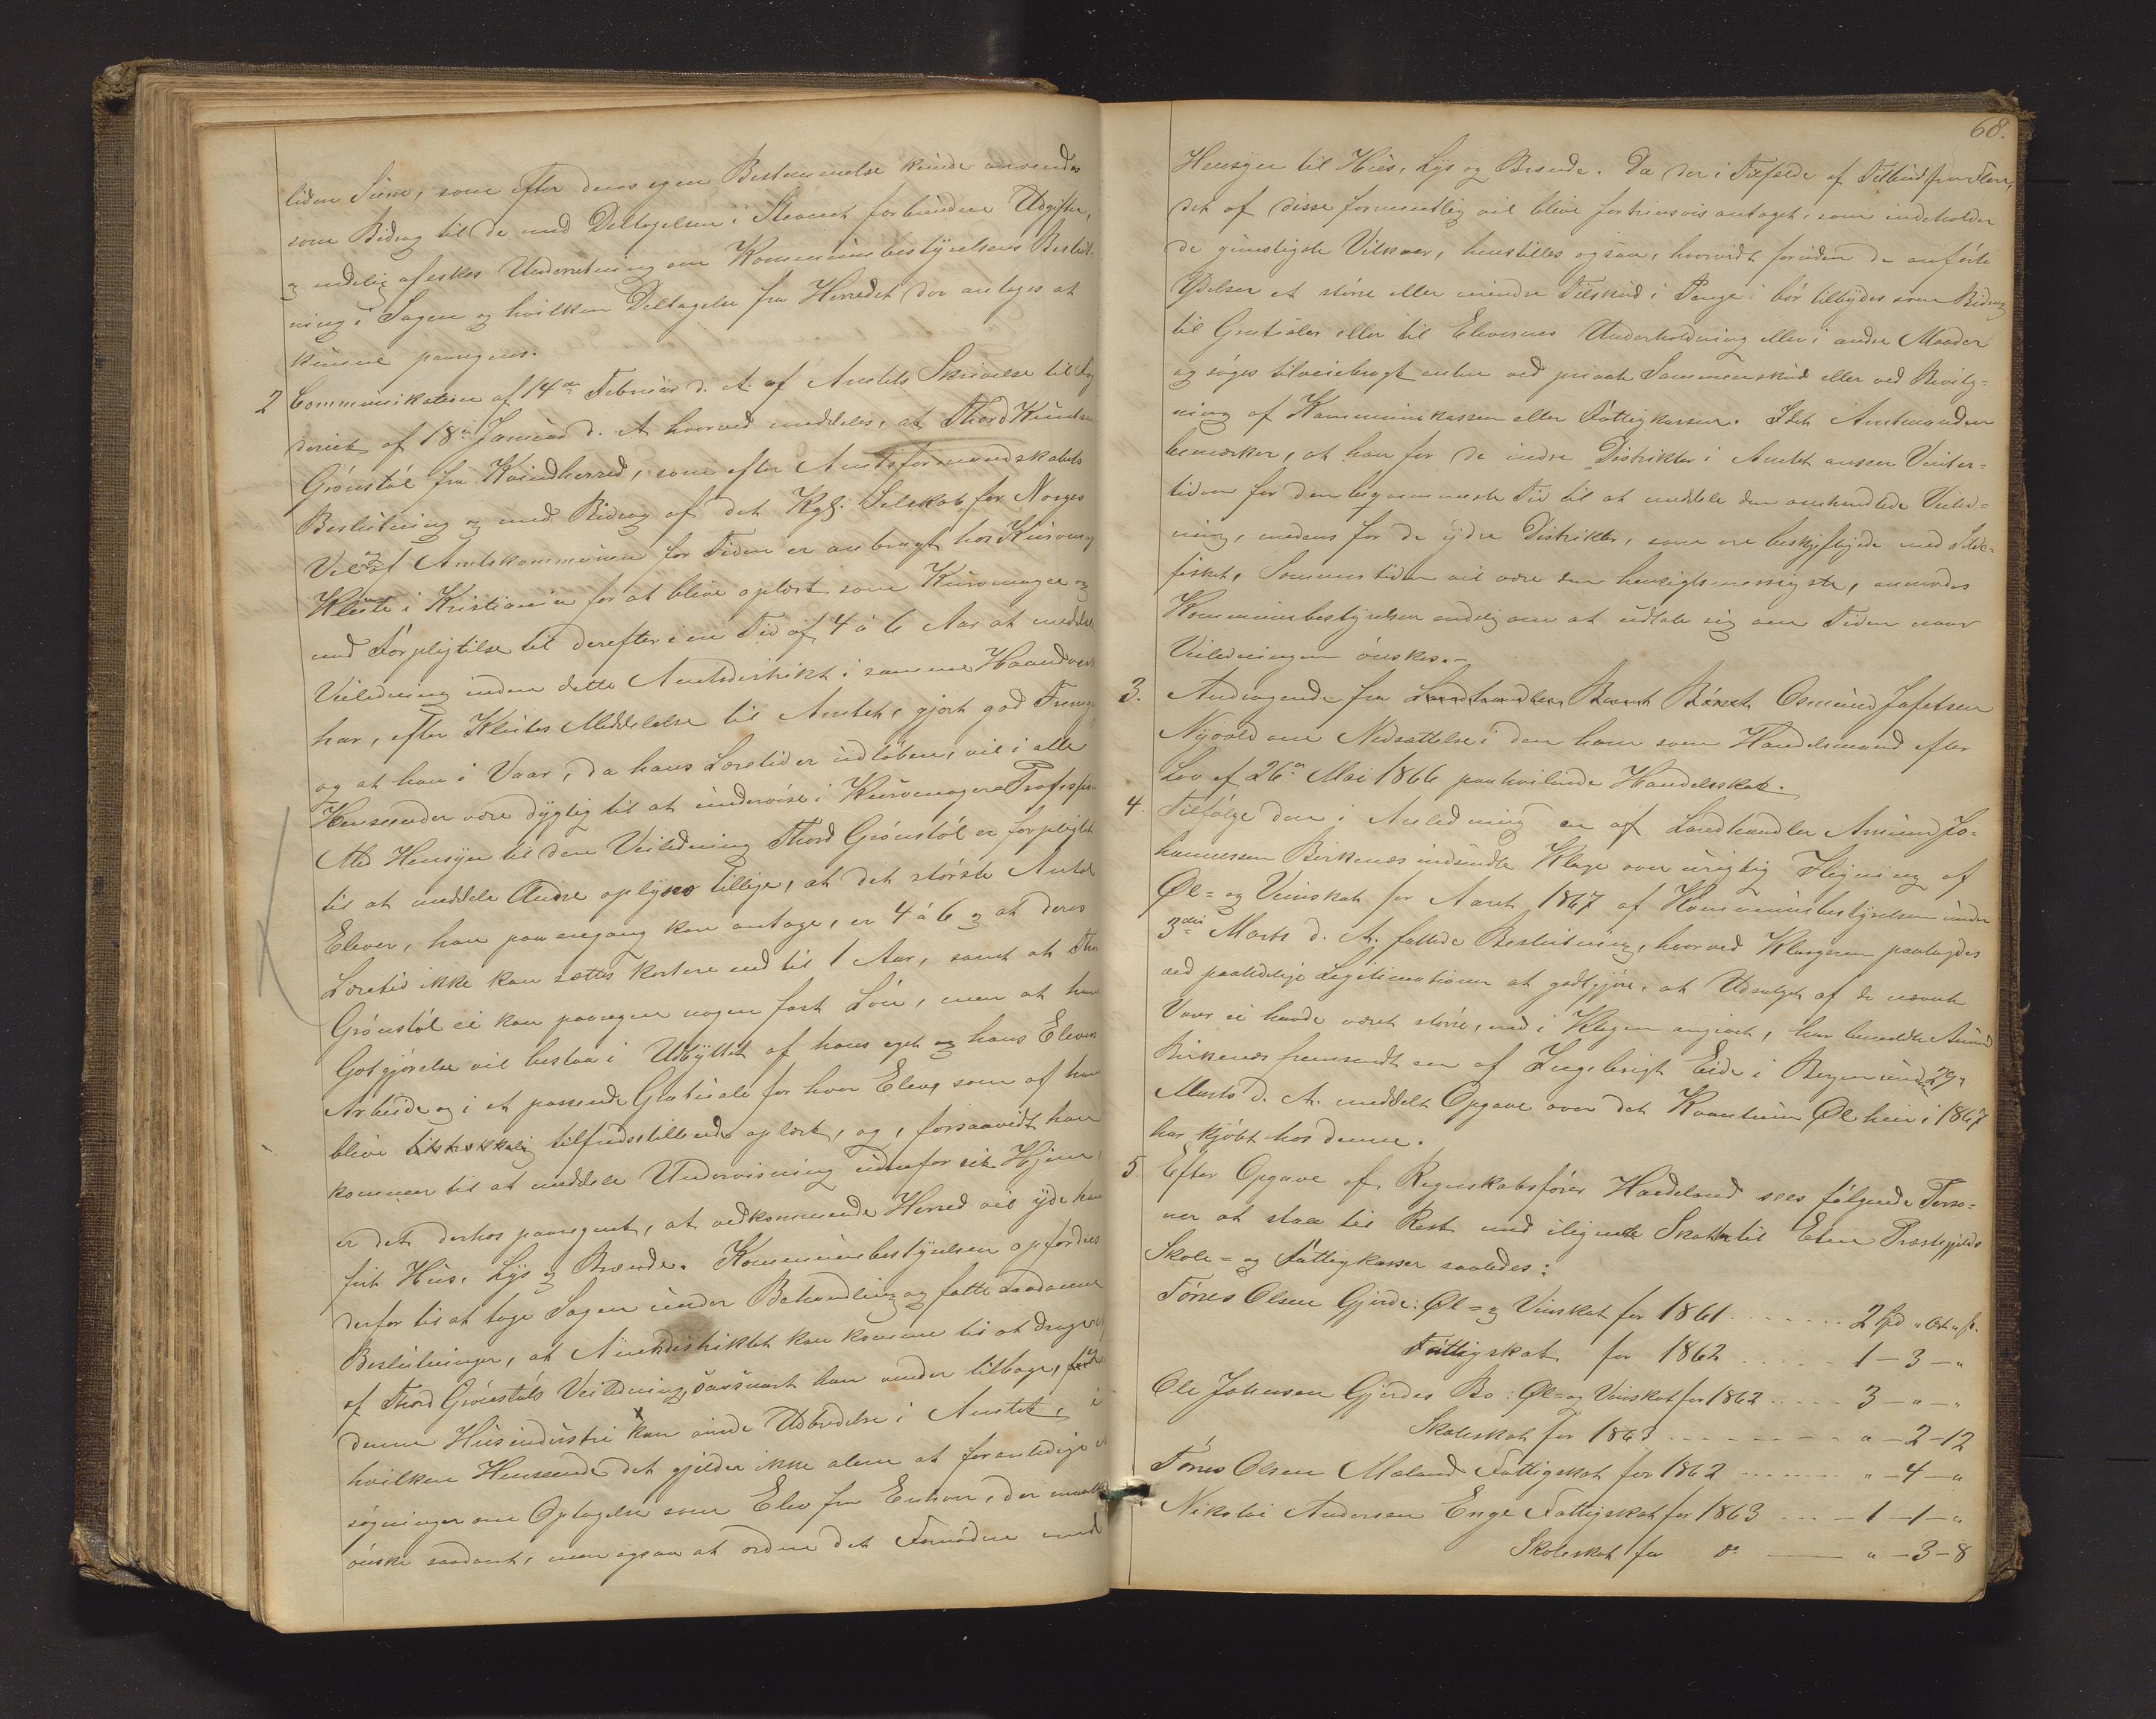 liden Sum, som efter dens egen Bestemmelse kunde anvendes
som Bidrag til de med Deltagelsen i Stevnet forbundne Udgifter,
og endelig afæskes Underretning om Kommunebestyrelsens Beslut-
ning i Sagen og hvilken Deltagelse fra Herredet der antages at
kunne paaregnes.
2 Communikation af 14de Februar d. A. af Amtets Skrivelse til Fog
deriet af 18de Januar d. A. hvorved meddeles, at Thord Knudsen
Grönstöl fra Kvindherred, som efter Amtsformandskabets
Beslutning og med Bidrag af det Kgl. Selskab for Norges
Vel og af Amtskommunen for Tiden er anbragt hos Kurvmager
Klute i Kristiania for at blive oplært som Kurvmager og
med Forpligtelse til derefter i en Tid af 4 á 6 Aar at meddele
Veiledning inden dette Amtsdistrikt i samme Haandverk
har, efter Klutes Meddelelse til Amtet, gjort god Fremga
og at han i Vaar, da hans Læretid er udløben, vil i alle
Henseender være dygtig til at undervise i Kurvmager Profession
Med Hensyn til den Veiledning Thord Grönstöl er forpligtet
til at meddele Andre oplyses tillige, at det største Antal
Elever, han paa engang kan antage, er 4 á 6 og at deres
Læretid ikke kan sættes kortere end til 1 Aar, samt at Tho
Grönstöl ei kan paaregne nogen fast Lön, men at hans
Godtgjörelse vil bestaa i Udbyttet af hans eget og hans Elevers
Arbeide og i et passende Gratiale for hver Elev, som af ham
blive tilstrækkelig tilfredsstillende oplært, og, forsaavidt han
kommer til at meddele Undervisning udenfor sit Hjem,
er det derhos paaregnet, at vedkommende Herred vil yde ham
frit Hus, Lys og Brænde. Kommunebestyrelsen opfordres
derfor til at tage Sagen under Behandling og fatte saadanne
Beslutninger, at Amtsdistriktet kan komme til at drage
af Thord Grönstöls Veiledning, saasnart han vender tilbage,
denne Husindustri kan vinde Udbredelse i Amtet, i
hvilken Henseende det gjelder ikke alene at foranledige A
søgninger om Optagelse som Elev fra Enhver, der maatte
ønske saadant, men ogsaa at ordne det Fornødne med
68.
Hensyn til Hus, Lys og Brænde. Da der i Tilfælde af Tilbud fra Flere,
det af disse formentlig vil blive fortrinsvis antaget, som indeholder
de gunstigste Vilkaar, henstilles ogsaa, hvorvidt foruden de anförte
Ydelser et större eller mindre Tilskud i Penge bör tilbydes som Bidrag
til Gratialer eller til Elevernes Underholdning eller i andre Maader
og söges tilveiebragt enten ved private Sammenskud eller ved Bevilg=
ning af Kommunekassen eller Fattigkassen. Idet Amtmanden
bemærker, at han for de indre Distrikter i Amtet anseer Vinter=
tiden for den beqvemmeste Tid til at meddele den omhandlede Veiled=
ning, medens for de ydre Distrikter, som ere beskjeftigede med Silde=
fisket, Sommertiden vil være den hensigtsmessigste, anmodes
Kommunebestyrelsen endelig om at udtale sig om Tiden naar
Veiledningen önskes.-
3. Andragende fra Landhandler Berent Börset Osmund Jafetsen
Nyvold om Nedsættelse i den ham som Handelsmand efter
Lov af 26de Mai 1866 paahvilende Handelsskat.
4. Tilfølge den i Anledning en af Landhandler Amund Jo=
hannessen Birkenæs indsendte Klage over urigtig Ligning af
Øl= og Vinskat for Aaret 1867 af Kommunebestyrelsen under
3die Marts d. A. fattede Beslutning, hvorved Klageren paalagdes
ved paalidelige Legitimationer at godtgjöre, at Udsalget af de nævnte
Varer ei havde været större, end i Klagen angivet, har bemeldte Amund
Birkenæs fremsendt en af Ingebrigt Eide i Bergen under 29.
Marts d. A. meddelt Opgave over det Kvantum Øl han i 1867
har kjöbt hos denne.
5. Efter Opgave af Regnskabsförer Hardeland sees fölgende Perso=
ner at staa til Rest med ilignede Skatter til Etne Præstegjelds
Skole= og Fattigkasser saaledes:
Tónes Olsen Gjerde: Øl= og Vinskat for 1861 ....... 2 Spd „ Ort „ ß.
Fattigskat for 1862 ..... 1 - 3 - „
Ole Johnsen Gjerdes Bo: Øl= og Vinskat for 1862 ..... 3 - „ - „
Skoleskat for 1863 ------- „ - 2 - 12
Tónes Olsen Mæland Fattigskat for 1862 ....... „ - 4 - „
Nikolai Andersen Enge Fattigskat for 1863 ... - 1 - 1 - „
Skoleskat for do „ - 3 - 8